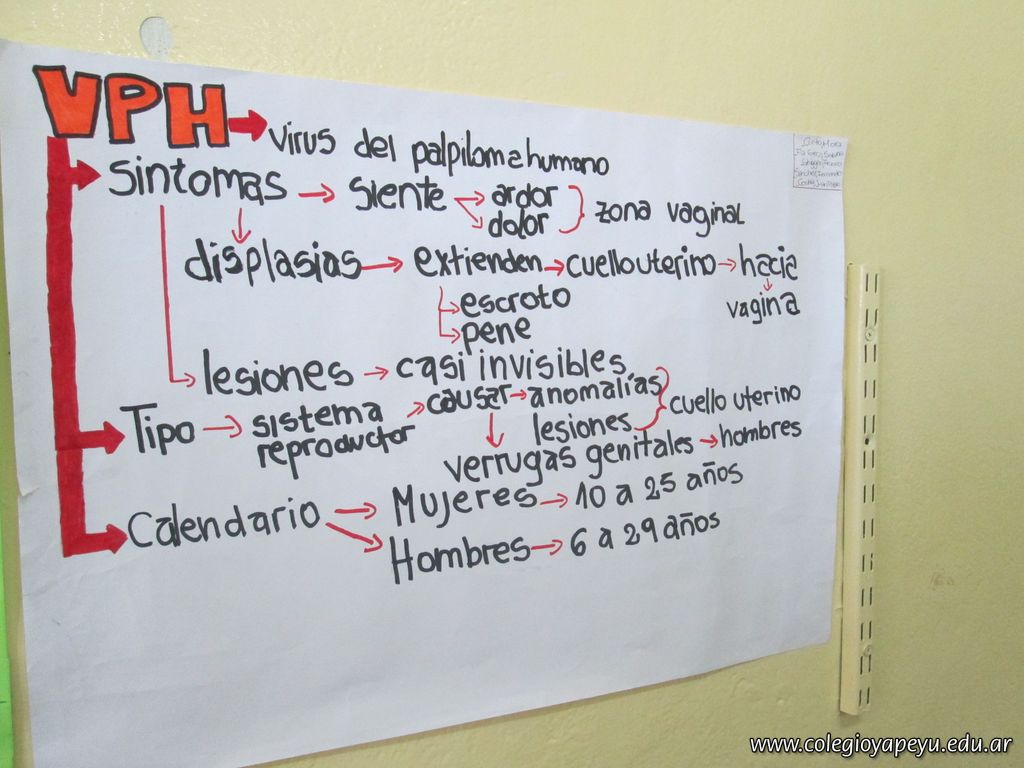 VPH → virus del palpiloma humano
Sintomas → siente → ardor
dolor } zona vaginal
displasias → extienden → cuello uterino → hacia
vagina
→ escroto
→ pene
lesiones → casi invisibles
Tipo → sistema reproductor → causar → anomalías
lesiones } cuello uterino
verrugas genitales → hombres
Calendario → Mujeres → 10 a 25 años
Hombres → 6 a 29 años
www.colegioyapeyu.edu.ar